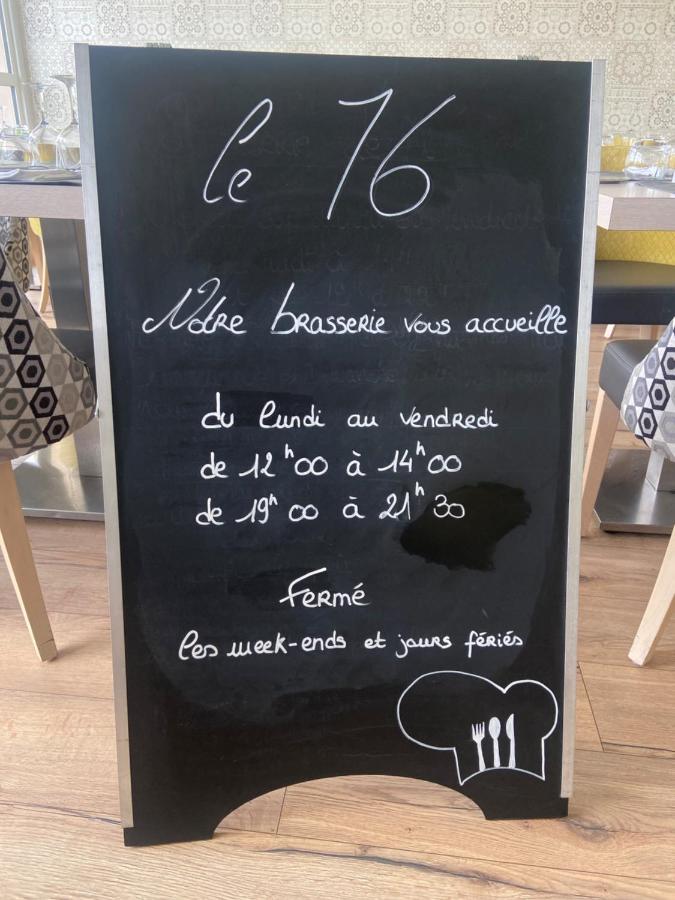 Le 76
Notre brasserie vous accueille
du lundi au vendredi
de 12h00 à 14h00
de 19h00 à 21h30
Fermé
les week-ends et jours fériés